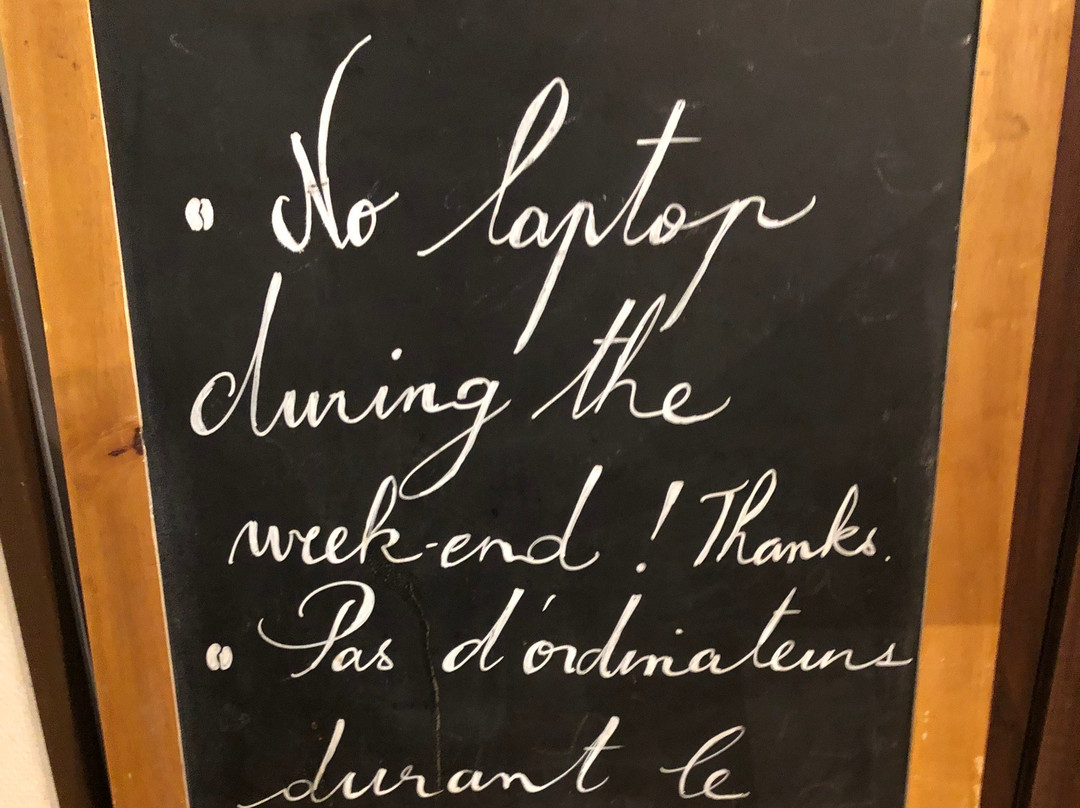 No laptop
during the
week-end ! Thanks.
Pas d'ordinateurs
durant le